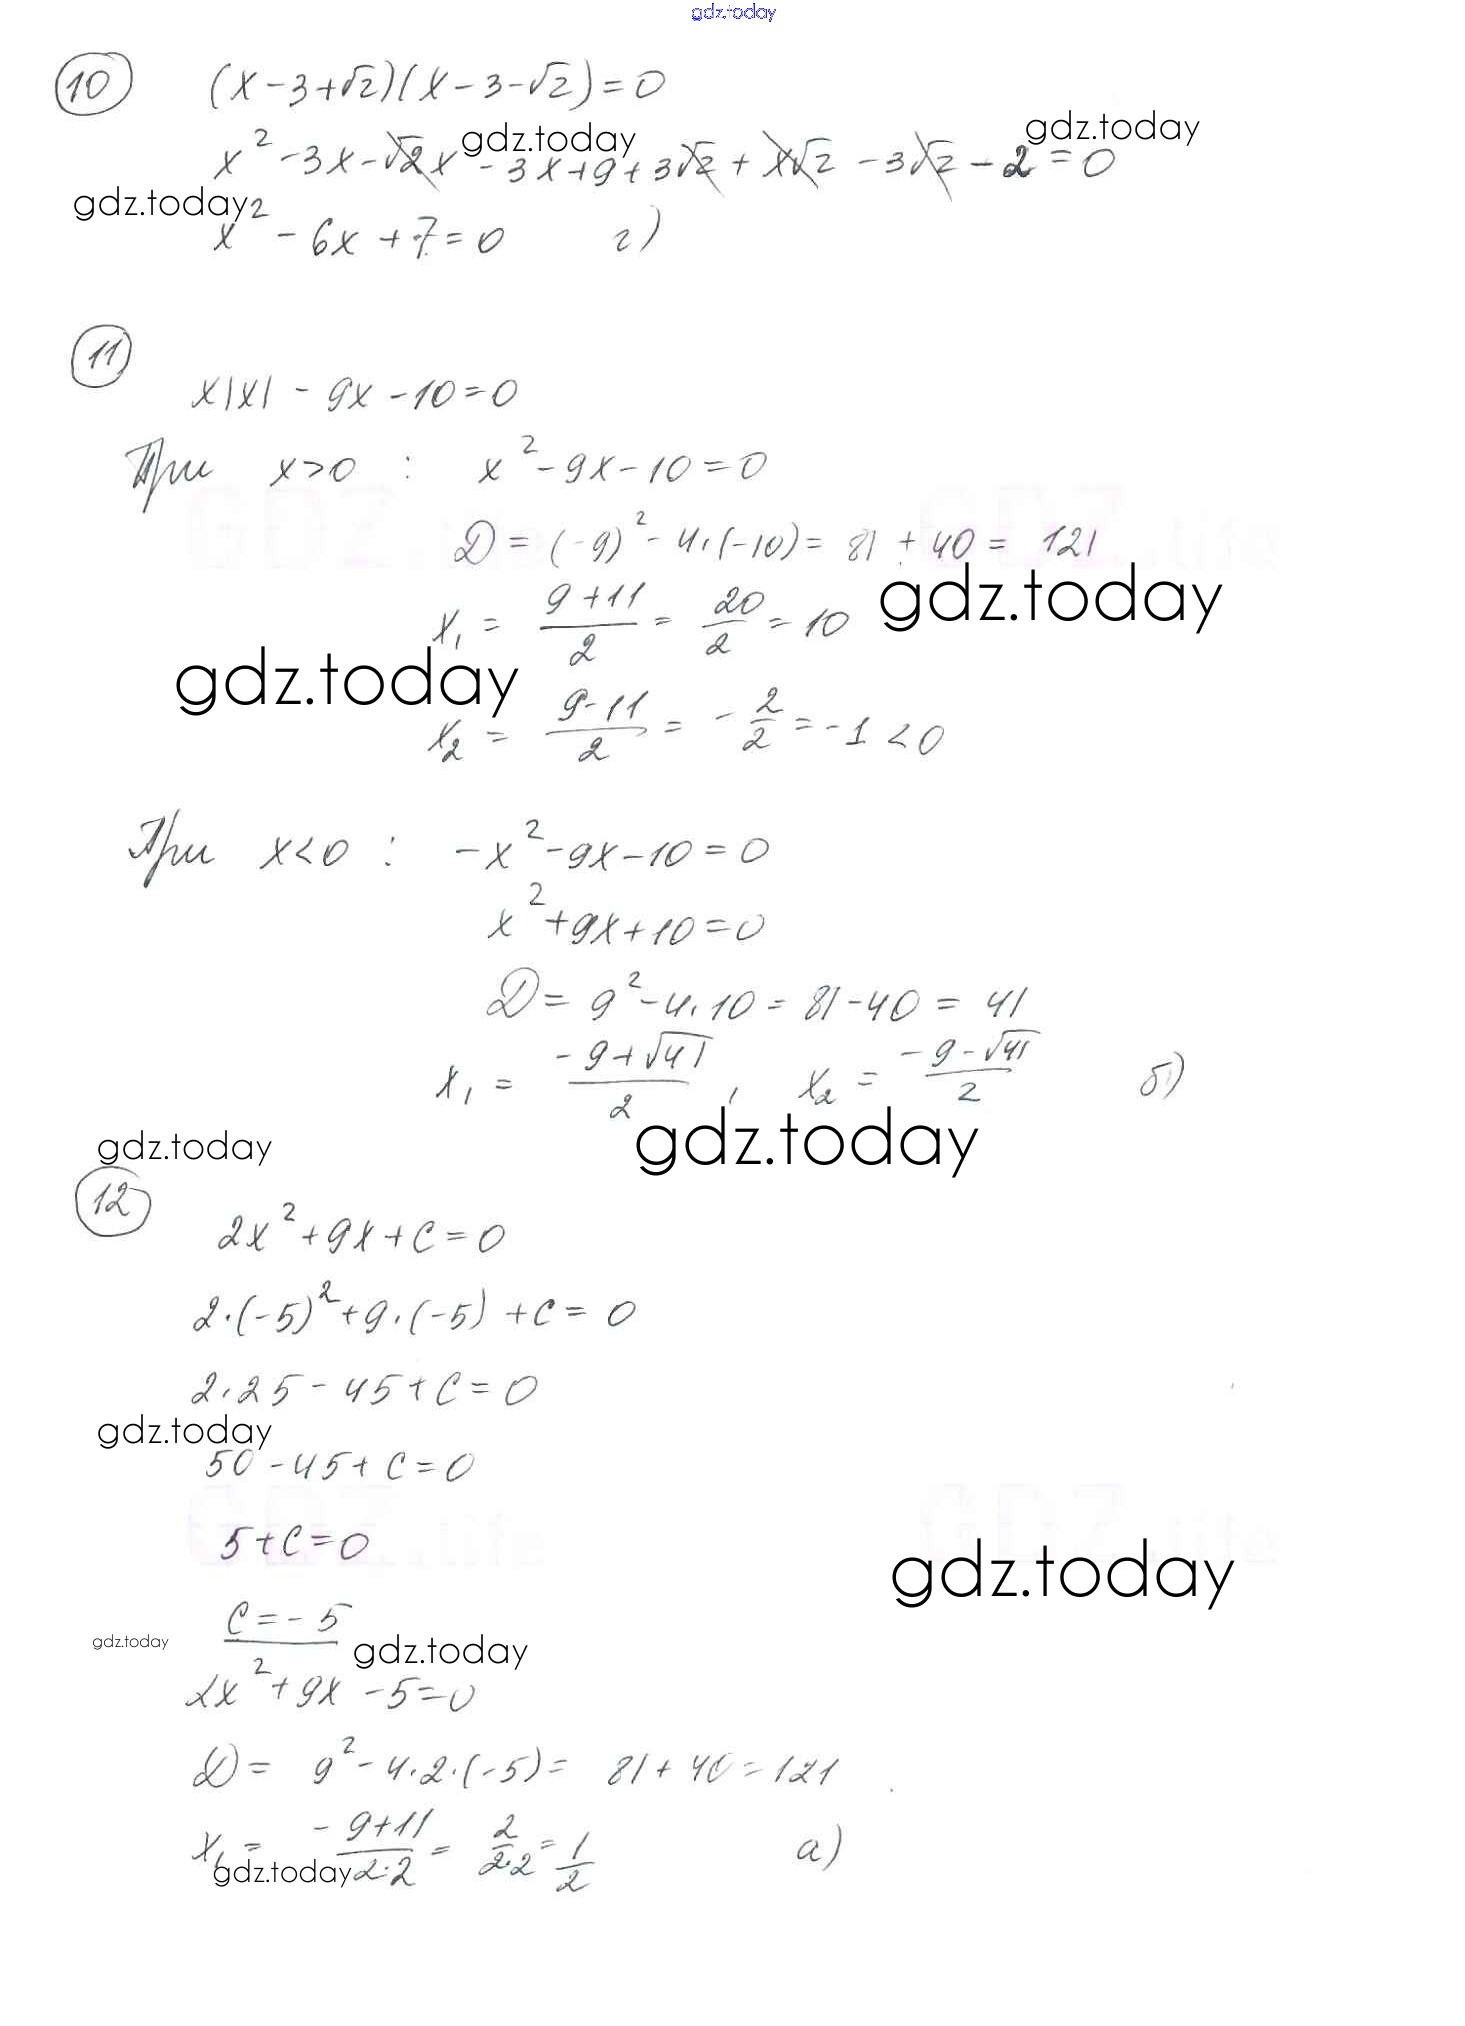 gdz.today
10 (x-3+√2)(x-3-√2)=0
gdz.today gdz.today
x²-3x-√2x-3x+9+3√2+x√2-3√2-2=0
gdz.today
x²-6x+7=0 г)
11
x|x|-9x-10=0
При x>0 : x²-9x-10=0
GDZ.life GDZ.life
D=(-9)²-4·(-10)=81+40=121
gdz.today
x₁ = (9+11)/2 = 20/2 = 10
gdz.today
x₂ = (9-11)/2 = -2/2 = -1<0
При x<0 : -x²-9x-10=0
x²+9x+10=0
D=9²-4·10=81-40=41
x₁ = (-9+√41)/2 , x₂ = (-9-√41)/2 б)
gdz.today gdz.today
12
2x²+9x+c=0
2·(-5)²+9·(-5)+c=0
2·25-45+c=0
gdz.today
50-45+c=0
GDZ.life GDZ.life
5+c=0
gdz.today
c=-5
gdz.today gdz.today
2x²+9x-5=0
D=9²-4·2·(-5)=81+40=121
x₁ = (-9+11)/(2·2) = 2/(2·2) = 1/2 а)
gdz.today